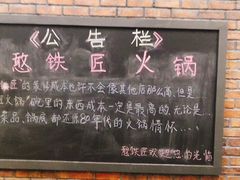 《公告栏》
憨铁匠火锅
匠的菜品成本也许不会像其他店那么高,但是
火锅"碗里的东西成本一定是最高的,无论是
菜品、锅底都还原80年代的火锅情怀…
憨铁匠欢迎您的光临